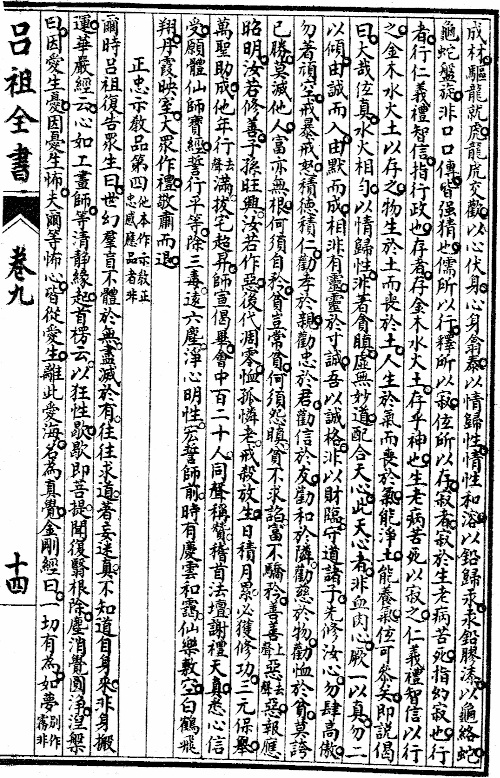 成材驅龍就虎龍虎交歡以心伏身心身翕泰以情歸性情性和溶以鉛歸汞汞鉛膠漆以龜絡蛇
龜蛇盤旋非口口傳皆强猜也儒所以行釋所以寂位所以存寂者寂於生老病苦死指幻寂也行
者行仁義禮智信指行政也存者存金木水火土存乎神也生老病苦死以寂之仁義禮智信以行
之金木水火土以存之物生於土而喪於土人生於氣而喪於氣能淨土能養氣位可參矣即說偈
曰大哉位真水火相勻以情歸性非著貪瞋虛無妙道配合天心此天心者非血肉心厥一以真勿二
以傾由誠而入由默而成相非有靈靈於寸誠吾以誠格非以財臨守道諸子先修汝心勿肆高傲
勿著頑空戒暴戒怒積德積仁勸孝於親勸忠於君勸信於友勸和於隣勸慈於物勸恤於貧莫誇
已勝莫滅他人富亦無根何須自矜貧豈常貧何須怨瞋貧不求諂富不驕矜善善上聲惡去聲惡報應
昭明汝若修善子孫旺興汝若作惡後代凋零恤孤憐老戒殺放生日積月累必獲修功三元保舉
萬聖助成他年行去聲滿拔宅超昇師宣偈畢會中百二十人同聲稱贊稽首法壇謝禮天真悉心信
受願體仙師寶經誓行平等除三毒遠六塵淨心明性宏誓師前時有慶雲和靄仙樂數空白鶴飛
翔丹霞映室大眾作禮敬肅而退
正忠示敎品第四他本作示敎正忠感應品者非
爾時呂祖復告衆生曰世幻羣盲不體於無盡滅於有往往求道著妄迷真不知道自身來非身搬
運華嚴經云心如工畫師等清靜緣起首楞云以狂性歇歇即菩提聞復翳根除塵消覺圓淨湼槃
曰因愛生憂因憂生怖夫爾等怖心皆從愛生離此愛海名為真覺金剛經曰一切有為如夢別作霧非
呂祖全書
卷九
十四